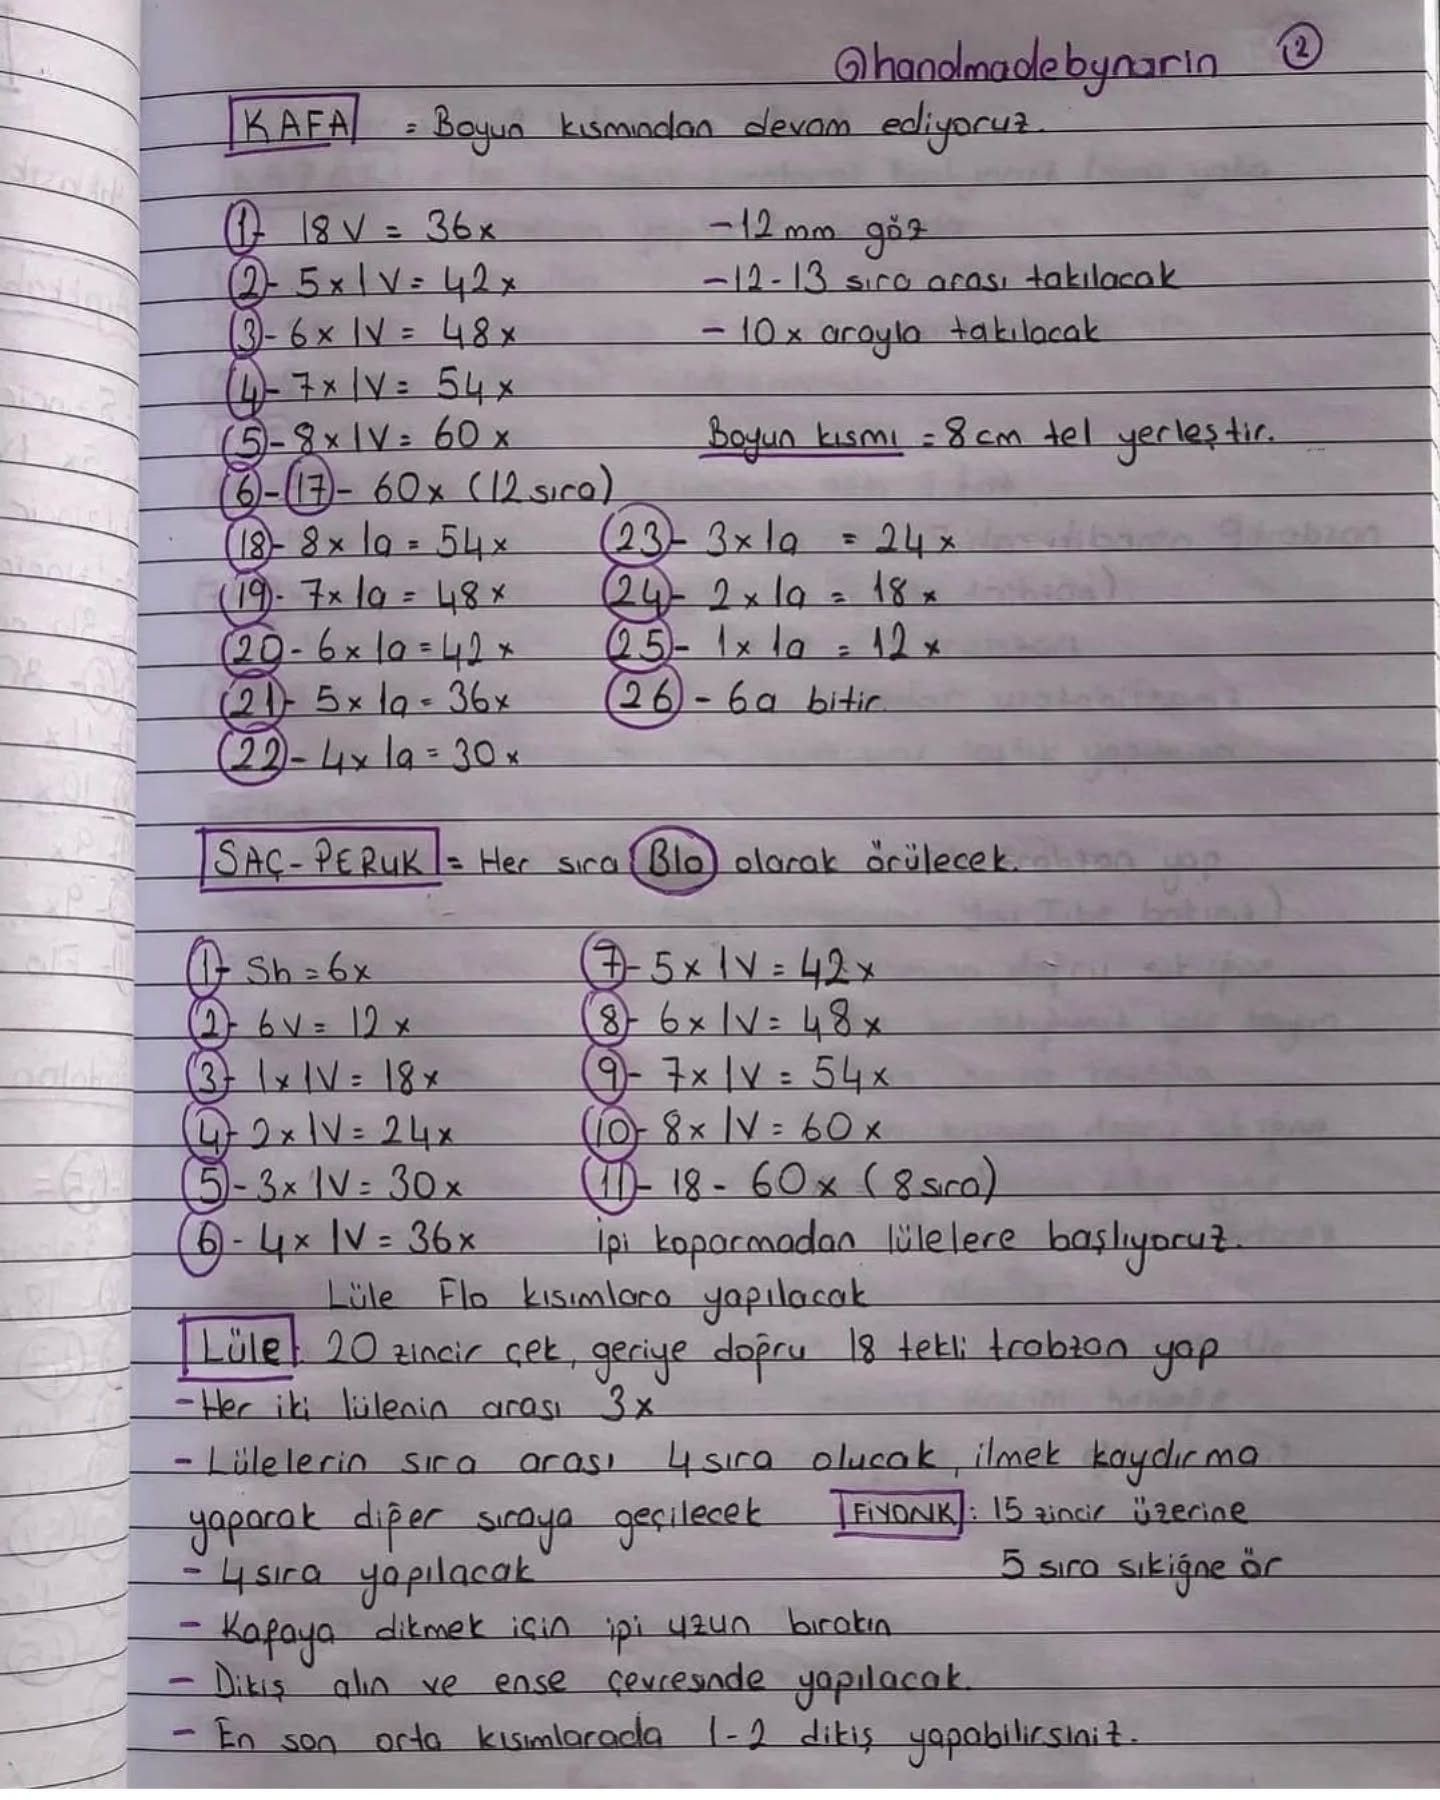 @handmadebynarin 2
KAFA = Boyun kısmından devam ediyoruz.
1- 18 V = 36x
-12 mm göz
2- 5x1V = 42x
-12-13 sıra arası takılacak
3- 6x1V = 48x
- 10x arayla takılacak
4- 7x1V = 54x
5- 8x1V = 60x
Boyun kısmı = 8 cm tel yerleştir.
6-17- 60x (12 sıra)
18- 8x1a = 54x
19- 7x1a = 48x
20- 6x1a = 42x
21- 5x1a = 36x
22- 4x1a = 30x
23- 3x1a = 24x
24- 2x1a = 18x
25- 1x1a = 12x
26- 6a bitir.
SAÇ-PERUK = Her sıra Blo olarak örülecek.
1- Sh = 6x
2- 6V = 12x
3- 1x1V = 18x
4- 2x1V = 24x
5- 3x1V = 30x
6- 4x1V = 36x
7- 5x1V = 42x
8- 6x1V = 48x
9- 7x1V = 54x
10- 8x1V = 60x
11- 18- 60x (8 sıra)
İpi koparmadan lülelere başlıyoruz.
Lüle Flo kısımlara yapılacak
Lüle: 20 zincir çek, geriye doğru 18 tekli trabzan yap
- Her iki lülenin arası 3x
- Lülelerin sıra arası 4 sıra olucak, ilmek kaydırma
yaparak diğer sıraya geçilecek
FİYONK: 15 zincir üzerine
5 sıra sıkiğne ör
- 4 sıra yapılacak
- Kafaya dikmek için ipi uzun bırakın
- Dikiş alın ve ense çevresinde yapılacak.
- En son orta kısımlarada 1-2 dikiş yapabilirsiniz.